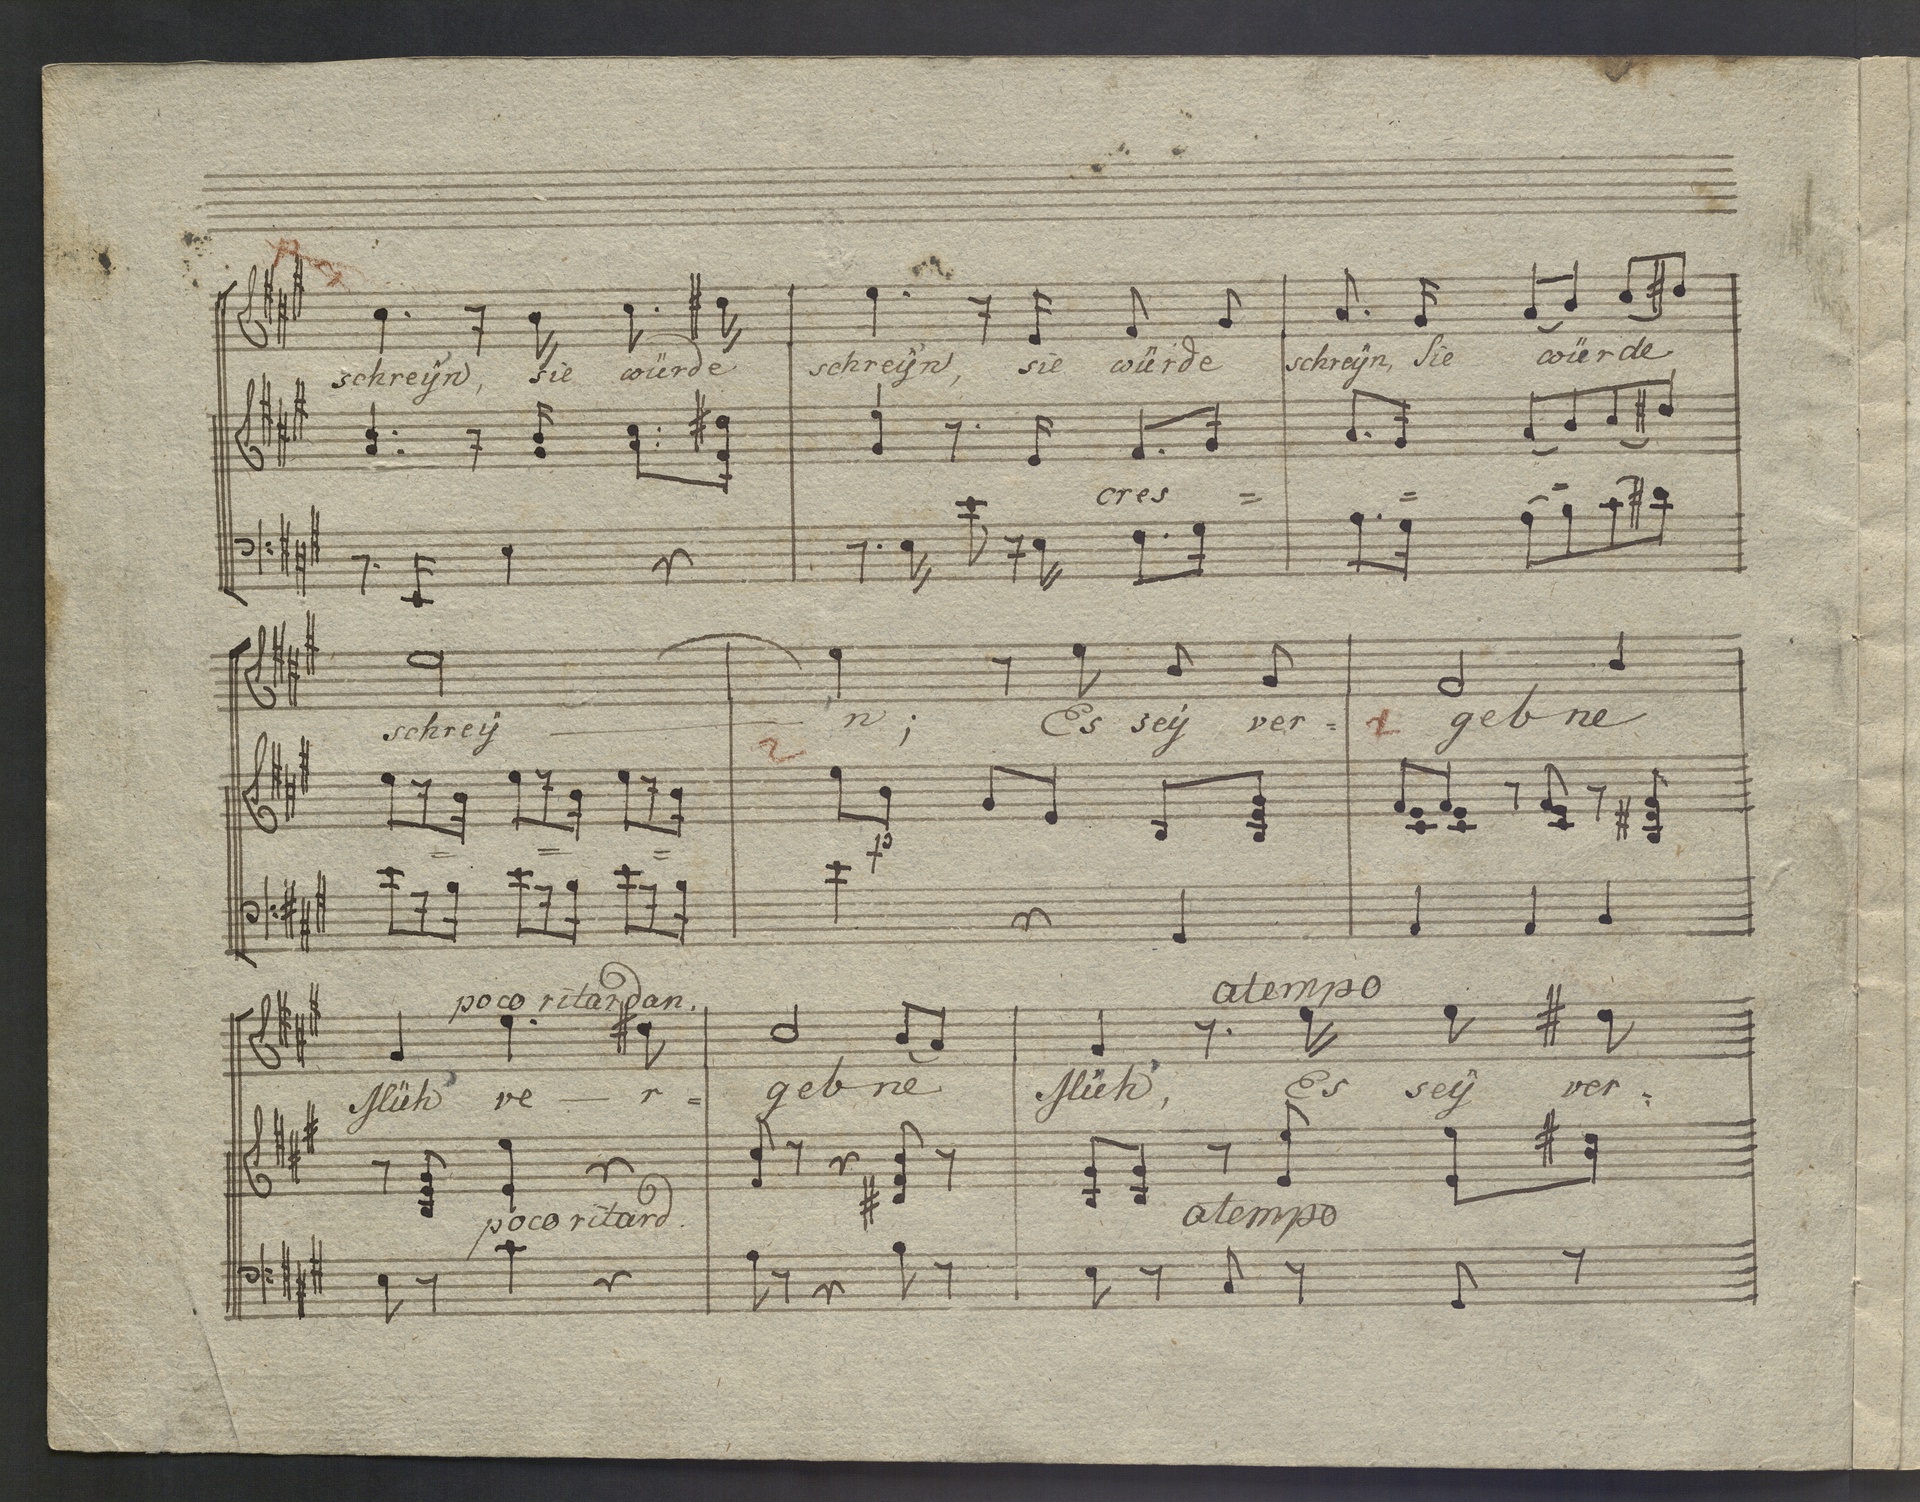 schreÿn, sie würde schreÿn, sie würde schreÿn, Sie würde
cres = = =
schreÿ — n; Es seÿ ver= gebne
= = = p
2 2
poco ritardan. atempo
Müh' ve — r= gebne Müh', Es seÿ ver=
poco ritard. atempo